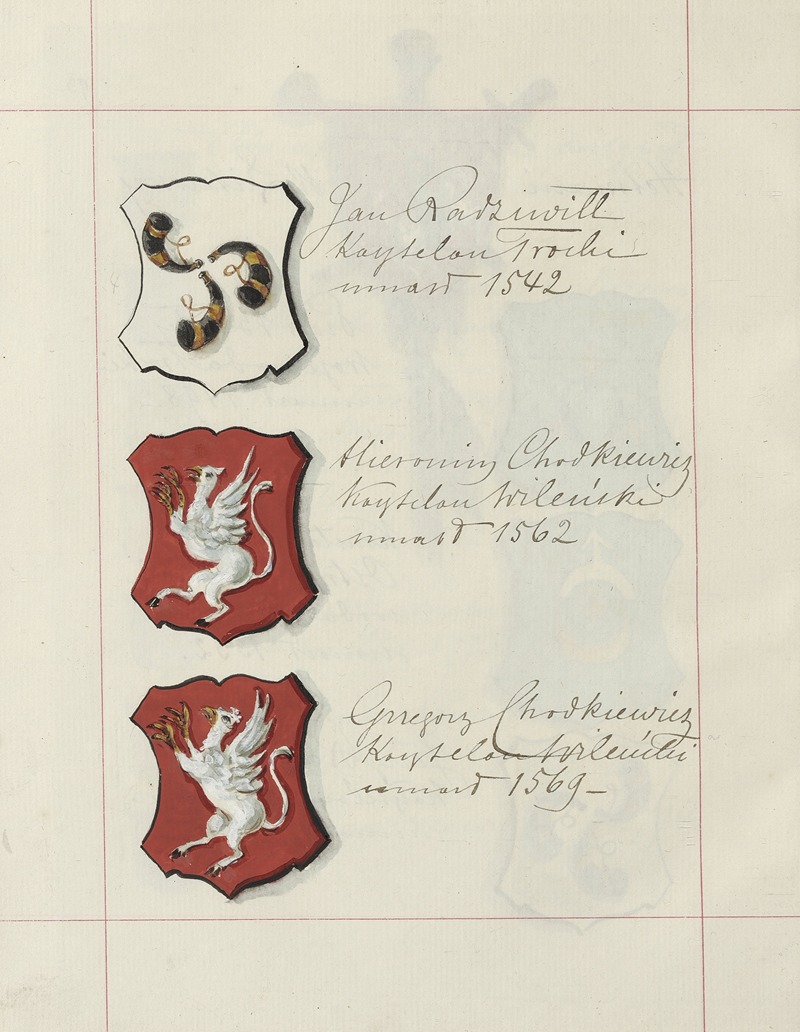 Jan Radziwiłł
Kasztelan Trocki
umarł 1542
Hieronim Chodkiewicz
Kasztelan Wileński
umarł 1562
Grzegorz Chodkiewicz
Kasztelan Wileński
umarł 1569 –